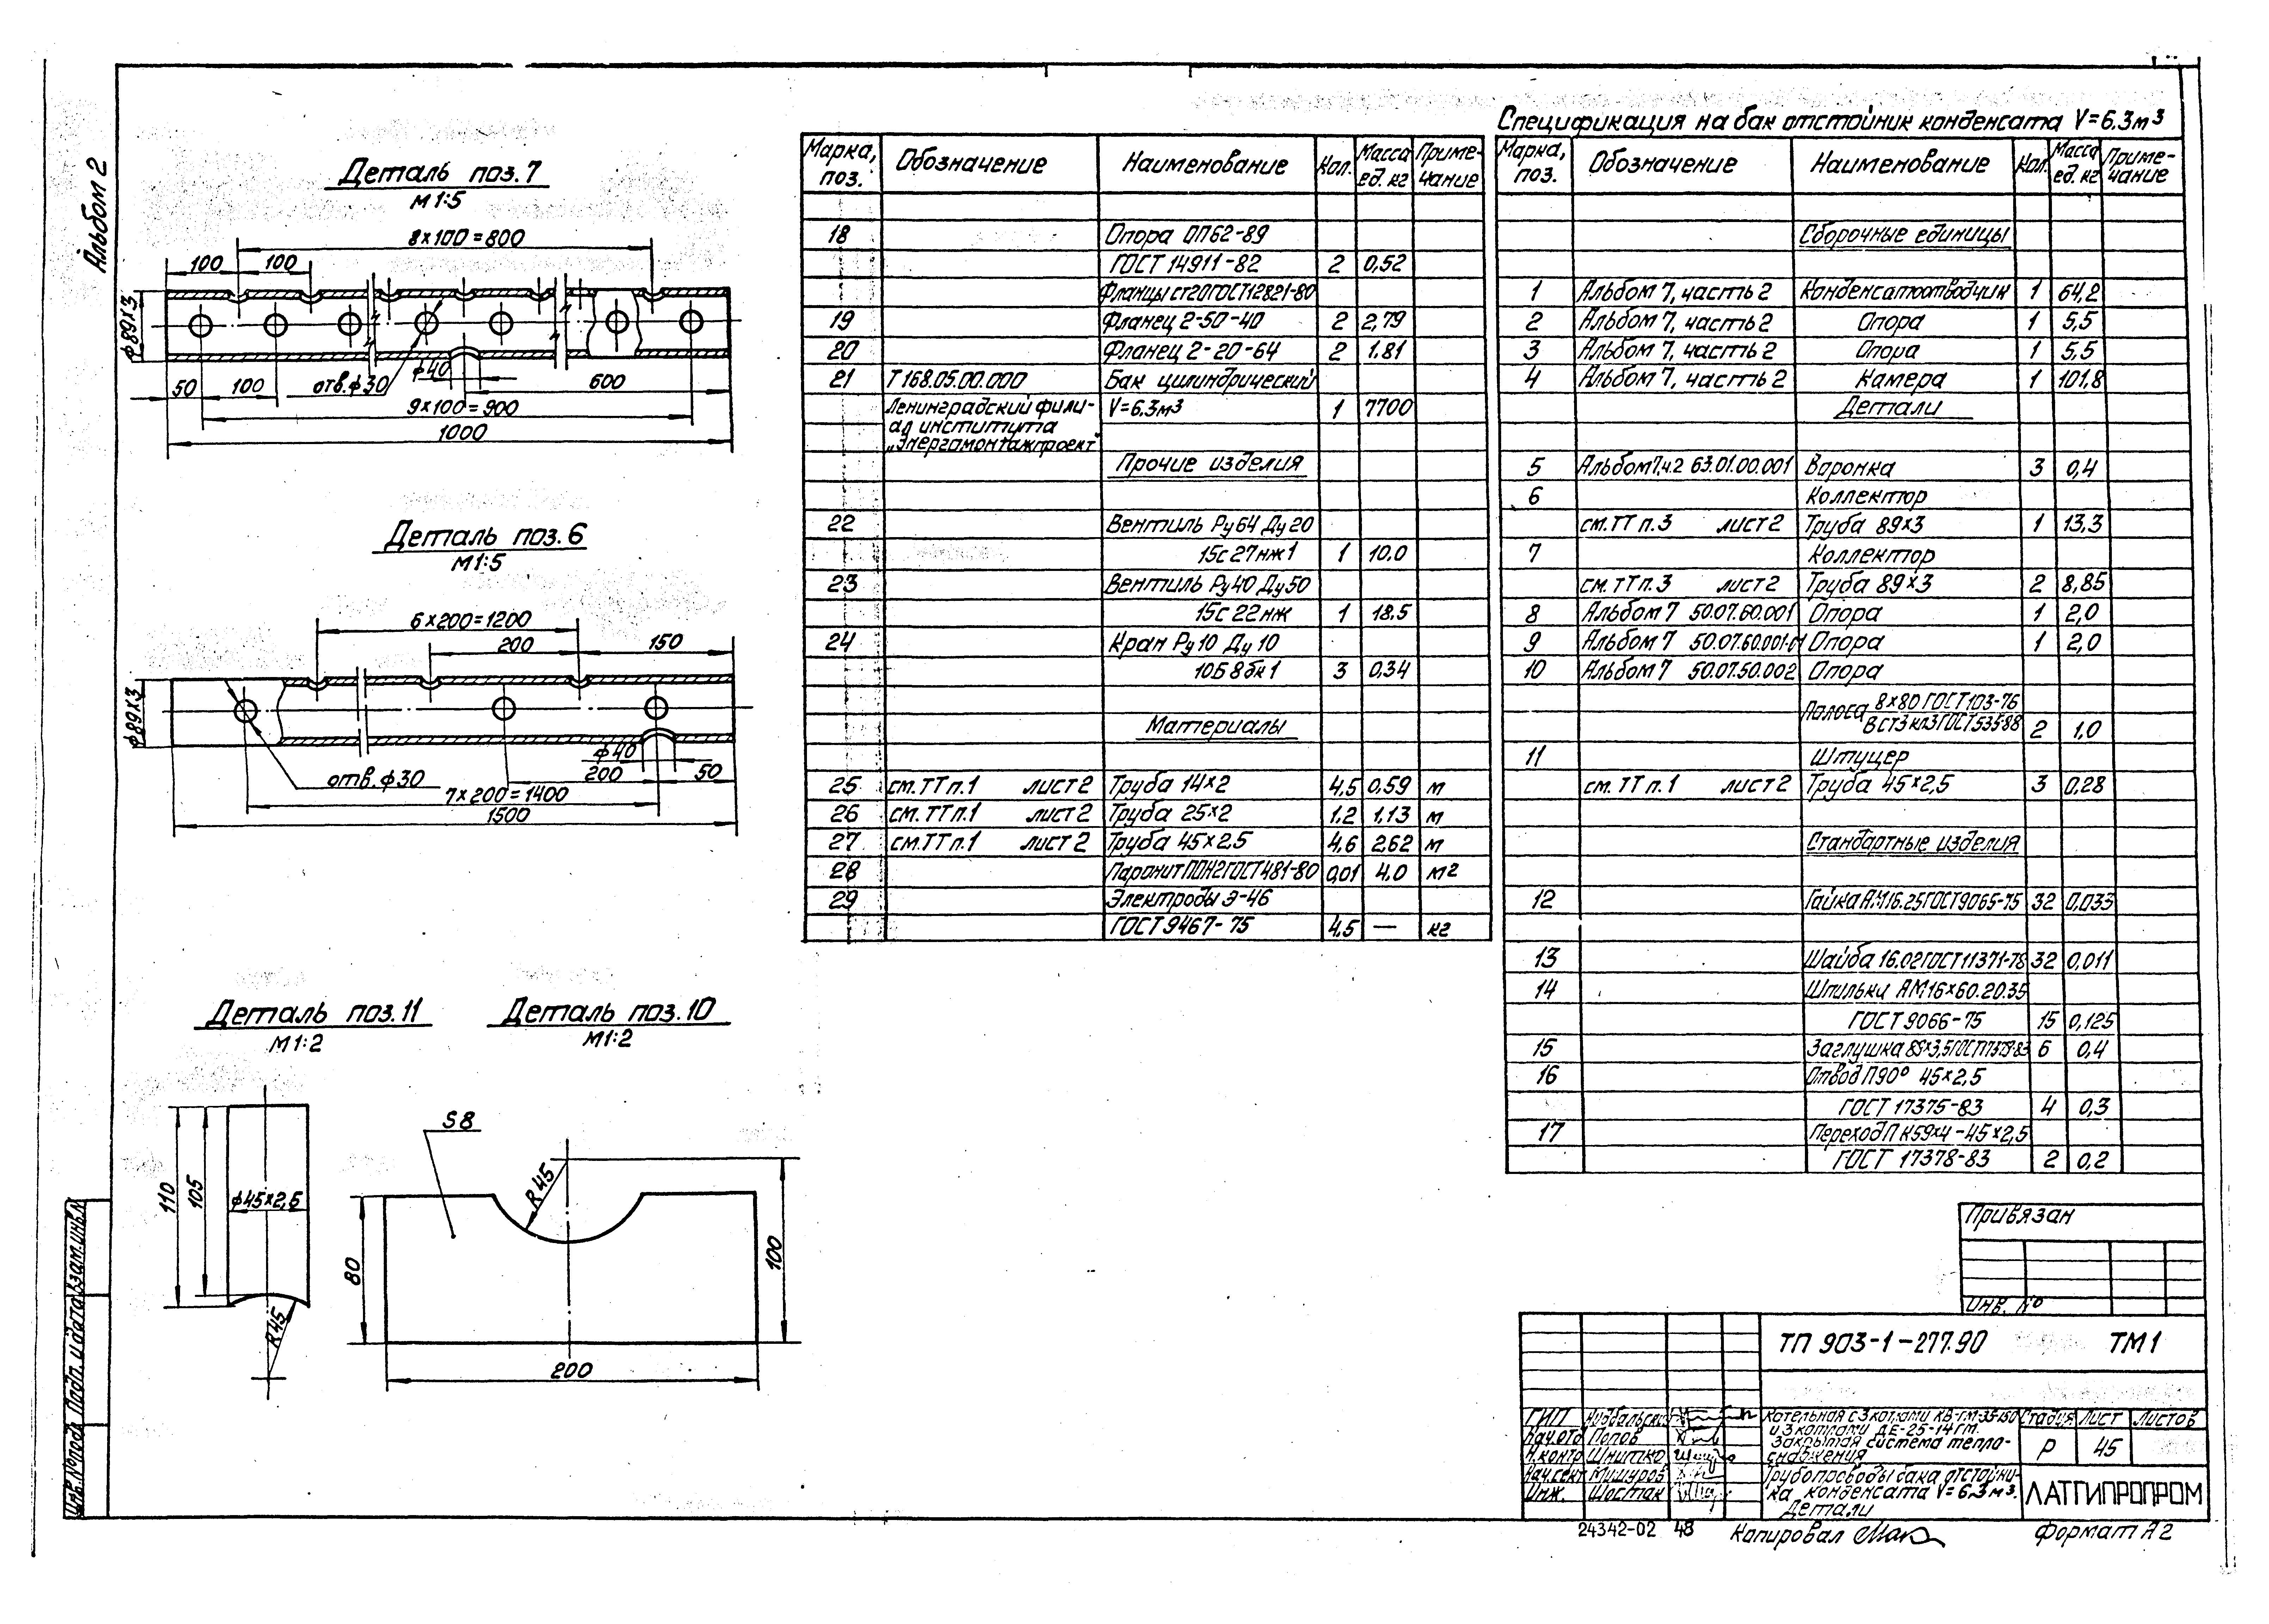 Альбом 2
Деталь поз. 7
М 1:5
8×100=800
100
100
ф89×3
50
100
отв. ф30
ф40
600
9×100=900
1000
Деталь поз. 6
М1:5
6×200=1200
200
150
ф89×3
отв. ф30
ф40
200
50
7×200=1400
1500
Деталь поз. 11
М1:2
110
105
ф45×2,5
R45
Деталь поз. 10
М1:2
S8
R45
80
100
200
Марка, поз. Обозначение Наименование Кол. Масса ед. кг Примечание
18 Опора ОП62-89
ГОСТ 14911-82 2 0,52
Фланцы ст20 ГОСТ12821-80
19 Фланец 2-50-40 2 2,79
20 Фланец 2-20-64 2 1.81
21 Т168.05.00.000 Бак цилиндрический
Ленинградский фили- V=6.3м³ 1 7700
ал института
„Энергомонтажпроект"
Прочие изделия
22 Вентиль Ру64 Ду20
15с27нж1 1 10.0
23 Вентиль Ру40 Ду50
15с22нж 1 18.5
24 Кран Ру10 Ду10
10Б8бк1 3 0.34
Материалы
25 см. ТТ п.1 лист 2 Труба 14×2 4,5 0,59 м
26 см. ТТ п.1 лист 2 Труба 25×2 1.2 1.13 м
27 см. ТТ п.1 лист 2 Труба 45×2.5 4,6 2.62 м
28 Паронит ПОН2 ГОСТ 481-80 0,01 4.0 м²
29 Электроды Э-46
ГОСТ 9467-75 4.5 — кг
Спецификация на бак отстойник конденсата V=6.3м³
Марка, поз. Обозначение Наименование Кол. Масса ед. кг Примечание
Сборочные единицы
1 Альбом 7, часть 2 Конденсатоотводчик 1 64,2
2 Альбом 7, часть 2 Опора 1 5,5
3 Альбом 7, часть 2 Опора 1 5.5
4 Альбом 7, часть 2 Камера 1 101,8
Детали
5 Альбом 7,ч.2 63.01.00.001 Воронка 3 0,4
6 Коллектор
см. ТТ п.3 лист 2 Труба 89×3 1 13.3
7 Коллектор
см. ТТ п.3 лист 2 Труба 89×3 2 8,85
8 Альбом 7 50.07.60.001 Опора 1 2,0
9 Альбом 7 50.07.60.001-01 Опора 1 2,0
10 Альбом 7 50.07.50.002 Опора
Полоса 8×80 ГОСТ103-76
ВСт3кп3 ГОСТ535-88 2 1.0
11 Штуцер
см. ТТ п.1 лист 2 Труба 45×2,5 3 0.28
Стандартные изделия
12 Гайка АМ16.25 ГОСТ9065-75 32 0,033
13 Шайба 16.02 ГОСТ11371-78 32 0,011
14 Шпильки АМ16×60.20.35
ГОСТ 9066-75 15 0,125
15 Заглушка 89×3,5 ГОСТ17379-83 6 0.4
16 Отвод П90° 45×2,5
ГОСТ 17375-83 4 0,3
17 Переход П К59×4-45×2,5
ГОСТ 17378-83 2 0.2
Привязан
Инв. №
ТП 903-1-277.90 ТМ1
ГИП
Нач.отд Попов
Н.контр Шнитко
Нач.сект Мишуров
Инж. Шостак
Котельная с 3 котлами КВ-ГМ-35-150
и 3 котлами ДЕ-25-14ГМ.
Закрытая система тепло-
снабжения
Стадия Лист Листов
Р 45
Трубопроводы бака отстойни-
ка конденсата V=6.3м³.
Детали
ЛАТГИПРОПРОМ
24342-02 48
Копировал
Формат А2
Инв.№подл. Подп. и дата Взам.инв.№